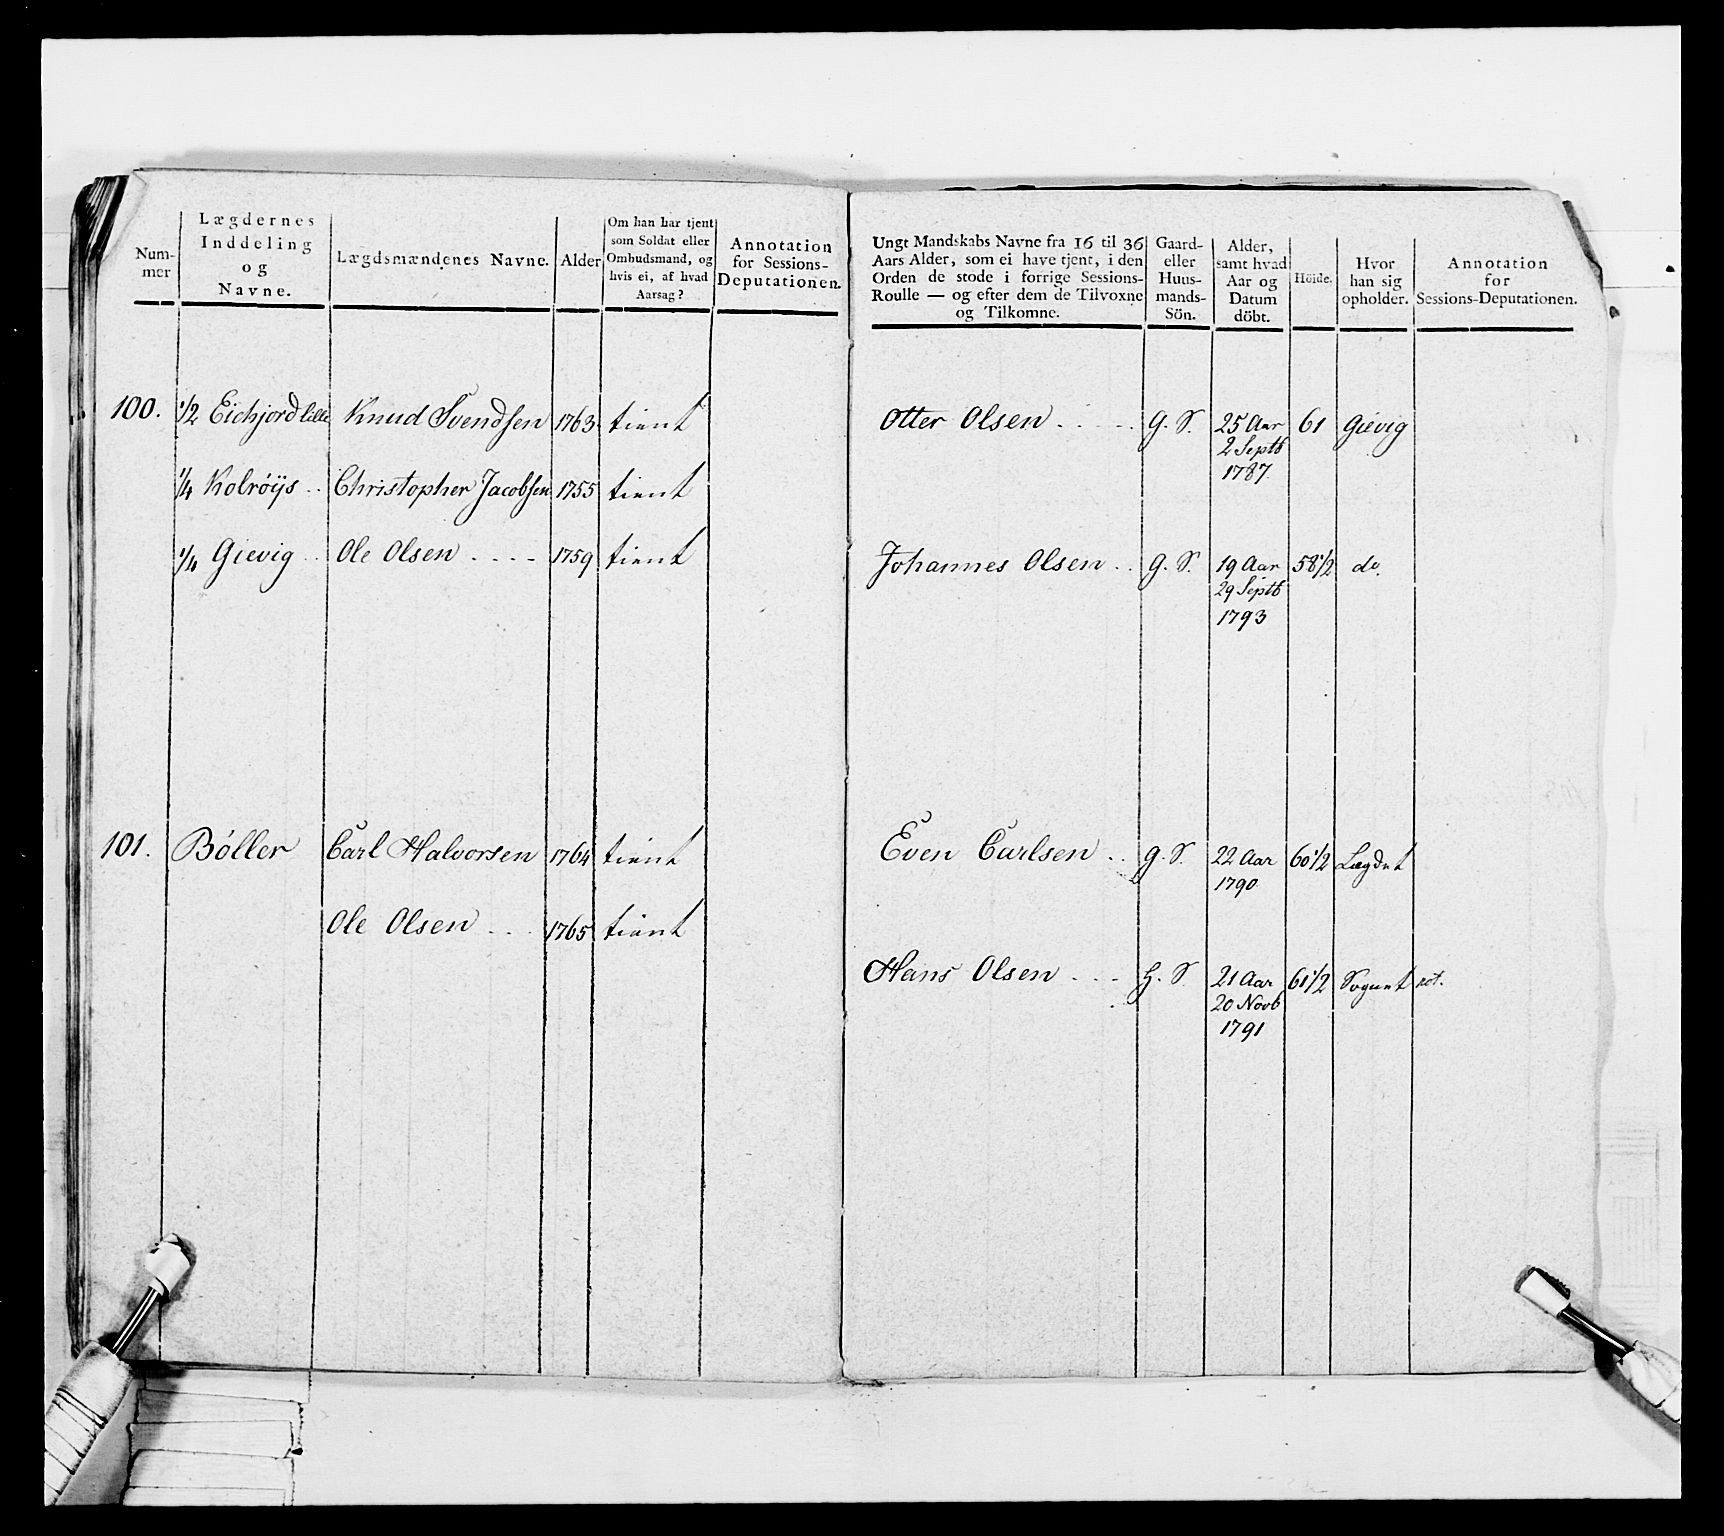 Num-
mer
Lægdernes
Inddeling
og
Navne.
Lægdsmændenes Navne.
Alder
Om han har tjent
som Soldat eller
Ombudsmand, og
hvis ei, af hvad
Aarsag?
Annotation
for Sessions-
Deputationen.
100. 1/2 Eichjord lille Knud Svendsen 1763 tient
1/4 Kolröijs .. Christopher Jacobsen 1755 tient
1/4 Gievig .. Ole Olsen .... 1759 tient
101. Böller Carl Halvorsen 1764 tient
Ole Olsen ... 1765 tient
Ungt Mandskabs Navne fra 16 til 36
Aars Alder, som ei have tjent, i den
Orden de stode i forrige Sessions-
Roulle — og efter dem de Tilvoxne
og Tilkomne.
Gaard-
eller
Huus-
mands-
Sön.
Alder,
samt hvad
Aar og
Datum
döbt.
Höide.
Hvor
han sig
opholder.
Annotation
for
Sessions-Deputationen.
Otter Olsen ..... G. S. 25 Aar 61 Gievig
2 Septb
1787.
Johannes Olsen .. G. S. 19 Aar 58 1/2 do.
29 Septb
1793
Even Carlsen .. G. S. 22 Aar 60 1/2 Lægdet
1790
Hans Olsen ... H. S. 21 Aar 61 1/2 Sognet not.
20 Novb
1791